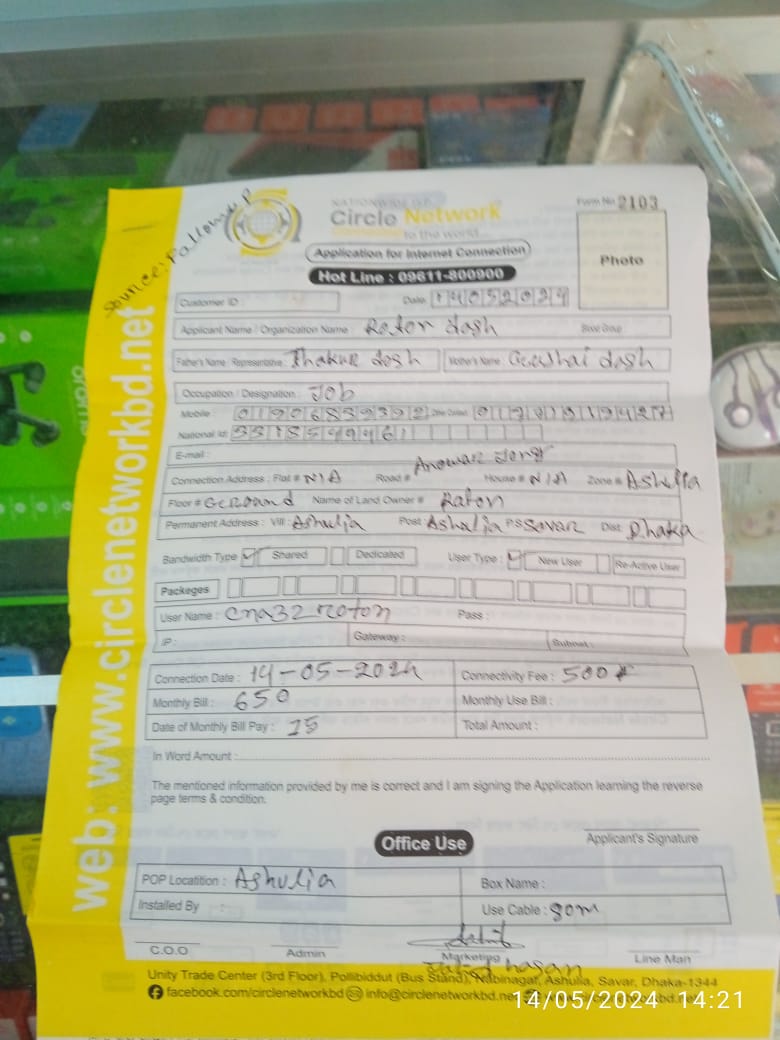 Source: Pallome P
NATIONWIDE ISP
Circle Network
Connecting to the world...
Form No 2103
Application for Internet Connection
Hot Line : 09611-800900
Photo
Customer ID :
Date: 14052024
Applicant Name / Organization Name : Raton dash
Blood Group
Father's Name / Representative : Thakur dosh Mother's Name Geeshai dash
Occupation / Designation : Job
Mobile : 01906839392
National Id:
E-mail :
Connection Address : Flat # N/A Road # Anowar House # N/A Zone # Ashulia
Floor # Geround Name of Land Owner # Raton
Permanent Address : Vill : Ashulia Post : Ashulia P.S Savar Dist: Dhaka
Bandwidth Type Shared Dedicated User Type : New User Re-Active User
Packeges
User Name : Cna32 roton Pass :
IP : Gateway : Subnet :
Connection Date : 14-05-2024 Connectivity Fee : 500
Monthly Bill : 650 Monthly Use Bill :
Date of Monthly Bill Pay : 15 Total Amount :
In Word Amount :
The mentioned information provided by me is correct and I am signing the Application learning the reverse
page terms & condition.
Applicant's Signature
Office Use
POP Locatition : Ashulia Box Name :
Installed By : Use Cable : 80m
C.O.O Admin Marketing Line Man
hasan
Unity Trade Center (3rd Floor), Pollibiddut (Bus Stand), Nabinagar, Ashulia, Savar, Dhaka-1344
facebook.com/circlenetworkbd info@circlenetworkbd.net
web: www.circlenetworkbd.net
14/05/2024 14:21